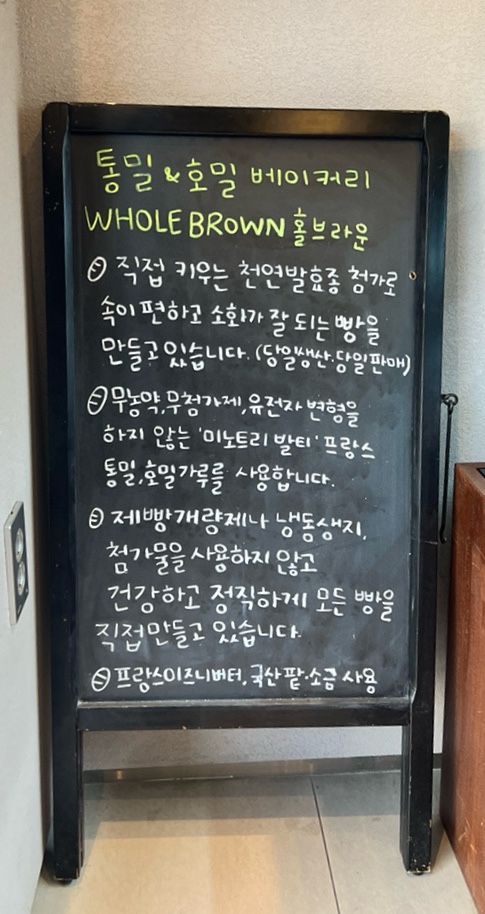 통밀 & 호밀 베이커리
WHOLE BROWN 홀브라운
직접 키우는 천연발효종 첨가로
속이 편하고 소화가 잘 되는 빵을
만들고 있습니다. (당일생산.당일판매)
무농약,무첨가제,유전자 변형을
하지 않는 '미노트리 발티' 프랑스
통밀,호밀가루를 사용합니다.
제빵개량제나 냉동생지,
첨가물을 사용하지 않고
건강하고 정직하게 모든 빵을
직접만들고 있습니다.
프랑스이즈니버터, 국산팥·소금 사용